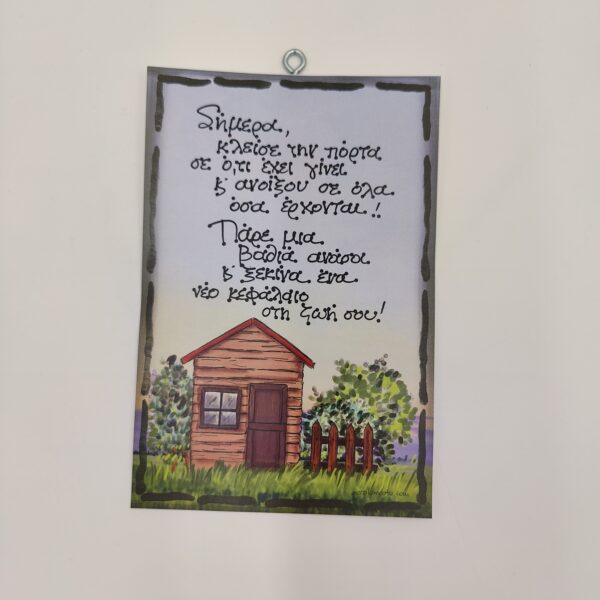 Σήμερα,
κλείσε την πόρτα
σε ό,τι έχει γίνει
κ' ανοίξου σε όλα
όσα έρχονται!!
Πάρε μια
βαθιά ανάσα
κ' ξεκίνα ένα
νέο κεφάλαιο
στη ζωή σου!